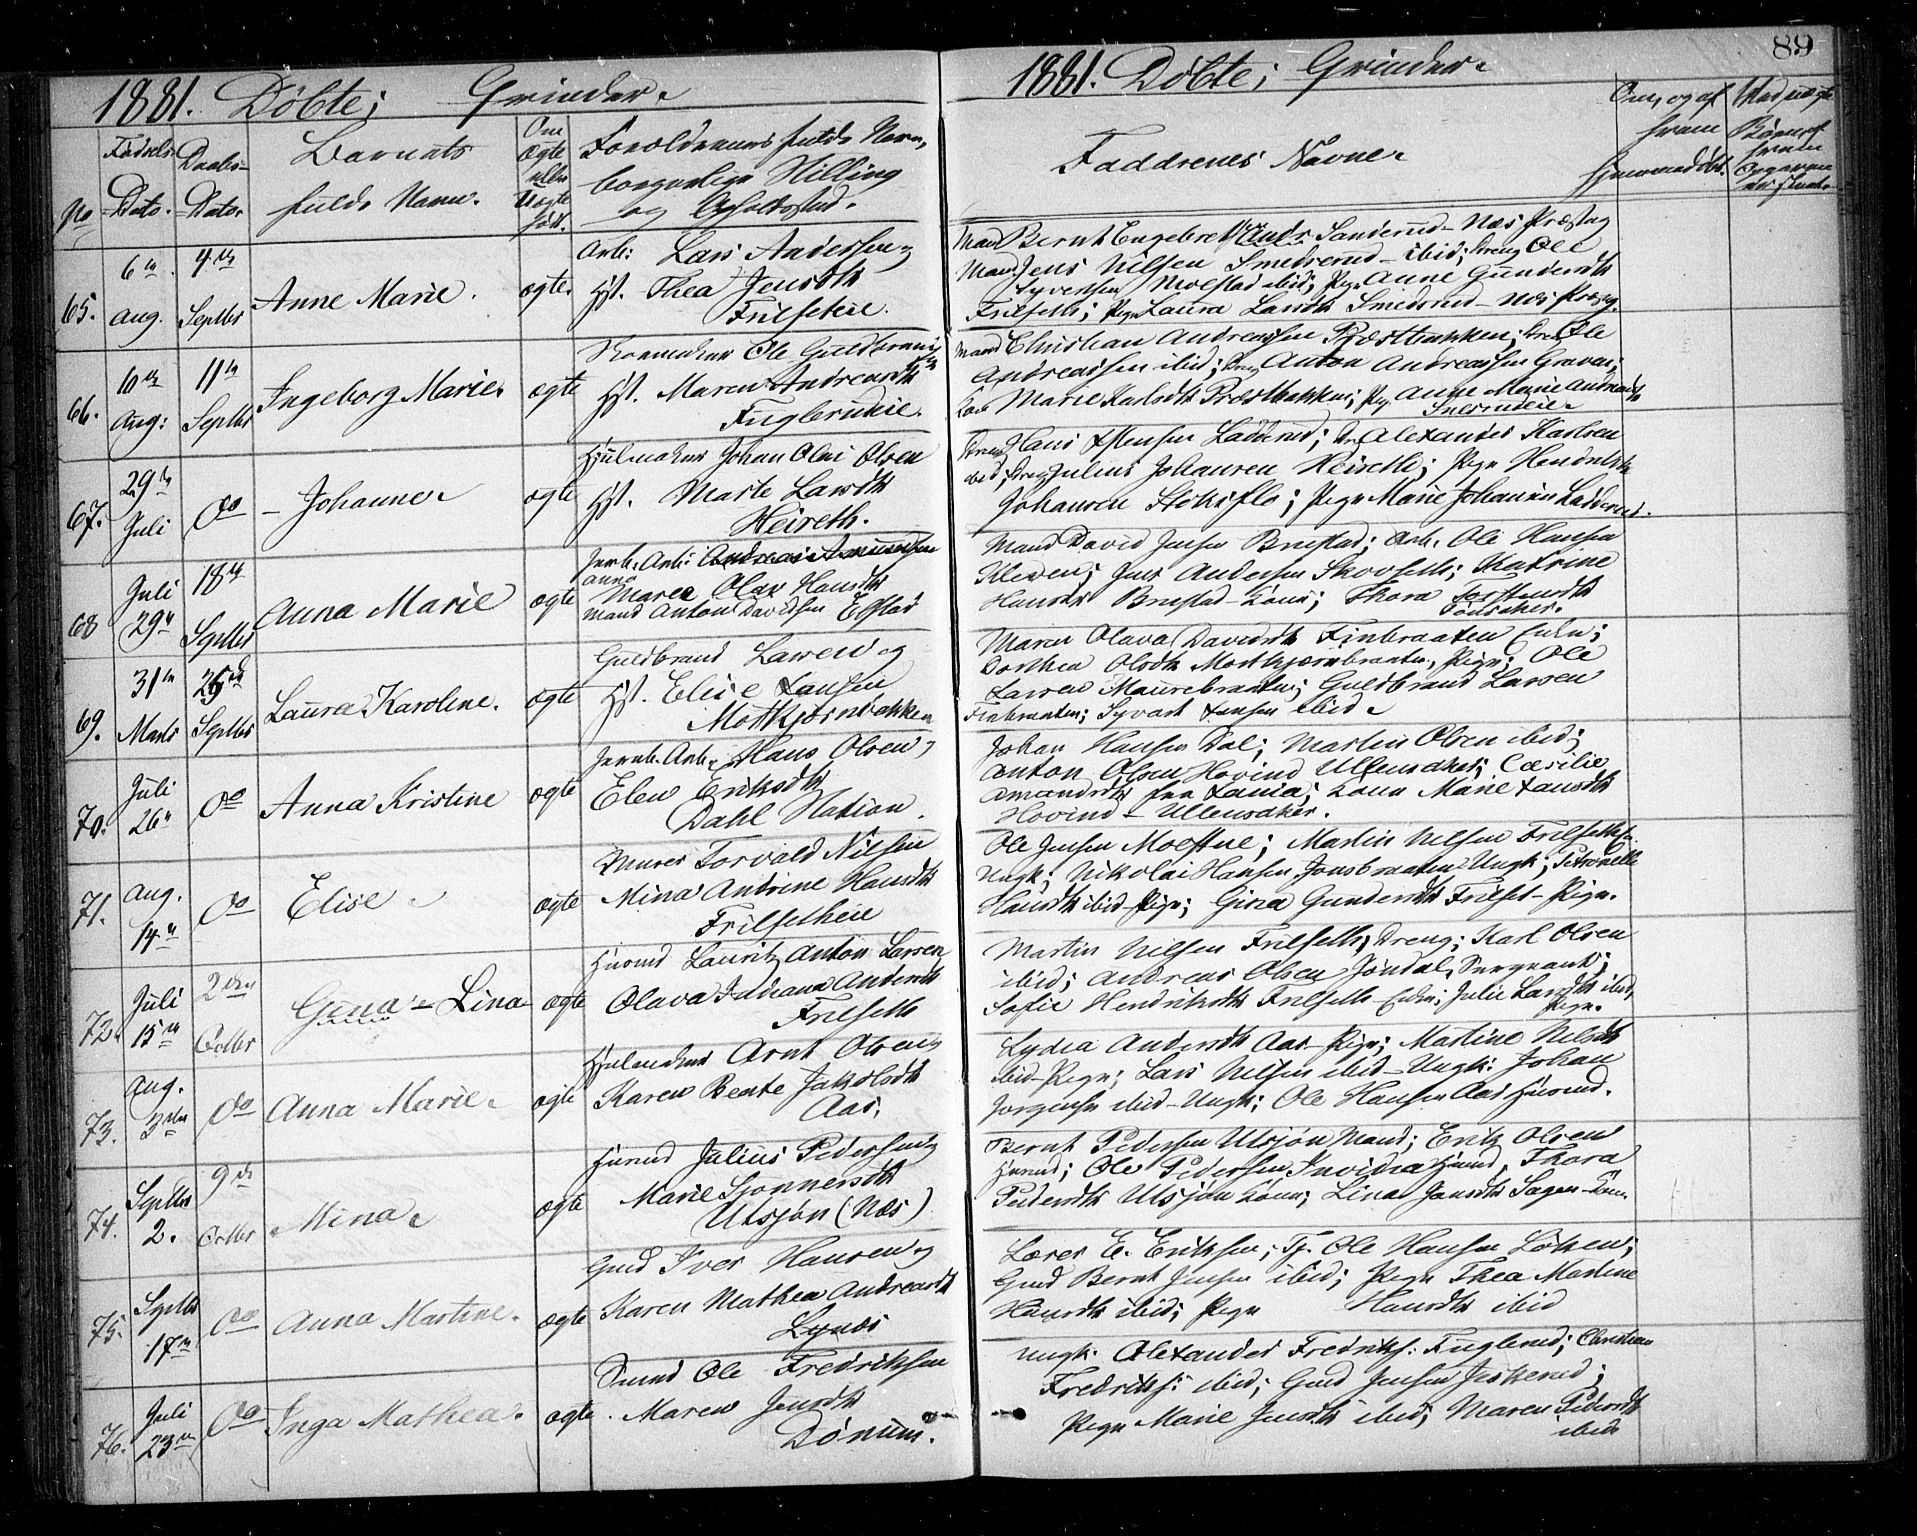 1881. Döbte; Grinder.
No
Fødsels-
Dato.
Daabs-
Dato.
Barnets
fulde Navn.
Om
ægte
eller
Uægte
født.
Forældrenes fulde Navn,
borgerlige Stilling
og Opholdssted.
65.
6te
Aug.
4de
Septbr
Anne Marie.
ægte.
Arb: Lars Andersen og
Hst. Thea Jensdtr
Frilseteie.
66.
10de
Aug:
11te
Septbr
Ingeborg Marie.
ægte
Skomaker Ole Guldbrandsen
Hst. Maren Andreasdtr
Fuglerudeie.
67.
29de
Juli
Do
Johanne.
ægte
Hjulmaker Johan Olai Olsen
Hst. Marte Larsdtr
Heireth.
68
Juli
29de
18de
Septbr
Anna Marie
ægte
Jernb. Arb: Andreas Amundsen
Maren Olava Hansdtr
Mand Anton Davidsen Egstad
69.
31te
Marts
25de
Septbr
Laura Karoline.
ægte
Guldbrand Larsen og
Hst. Elise Hansen
Motkjærnbakken
70.
Juli
26de
Do
Anna Kristine
ægte
Jernb. Arb. Hans Olsen,
Elen Eriksdtr
Dahl Station.
71.
Aug.
14de
Do
Elise.
ægte
Murer Torvald Nilsen
Mina Antrine Hansdtr
Frilsetheie
72.
Juli
15de
2den
Octbr
Gina - Lina
ægte
Husmd Lauritz Anton Larsen
Olava Juliana Andersdtr
Frilseth
73.
Aug.
3die
Do
Anna Marie.
ægte
Hjulmaker Arnt Olsen og
Karen Bente Jakobsdtr
Aas.
74.
Septbr
2.
9de
Octbr
Mina.
ægte
Husmd Julius Pedersen og
Marie Gjønnersdtr
Utsjøn (Næs)
75.
Septbr
17de
Do
Anna Martine.
ægte
Gmd Iver Hansen og
Karen Mathea Andreasdtr
Lynæs
76.
Juli
23de
Do
Inga Mathea.
ægte.
Ole Fredriksen
Maren Jensdtr
Dønum.
89
1881. Döbte; Grinder.
Faddrenes Navne.
Om, og af
hvem
hjemmedøbt.
Ved uægte
Børn
hvem
Mand Bernt Engebretsen Sanderud - Næs Præsteg
Mand Jens Nilsen Smedsrud - ibid; Dreng Ole
Syvertsen Moestad ibid; Pige Anne Gundersdtr
Frilseth; Pige Laura Larsdtr Smedsrud - Næs Præsteg.
Mand Christian Andreassen Præstbakken; Dreng Ole
Andreassen ibid; Dreng Anton Andreassen Graven;
Kone Marie Karlsdtr Præstbakken; Pige Anne Marie Andreasdtr
Dreng Hans Østensen Ladderud; Dr. Alexander Karlsen
ibid; Dreng Julius Johansen Heireth; Pige Hendrikke
Johansen Stensflo; Pige Marie Johansen Ladderud.
Mand David Jensen Brustad; Arb. Ole Hansen
Kleven; Jens Andersen Skovseth; Katrine
Hansdtr Brustad - Kone; Thora Torstensdtr
Maren Olava Davidsdtr Finbraaten Enke;
Dorthea Olsdtr Motkjærnbraaten, Pige; Ole
Larsen Maurebraaten; Guldbrand Larsen
Finbraaten; Syvert Hansen ibid.
Johan Hansen Dal; Martin Olsen ibid;
Anton Olsen Hovind Ullensaker; Cæcilie
Amandsdtr fra Fania; Kone Marie Hansdtr
Hovind - Ullensaker.
Ole Jensen Moestue; Martin Nilsen Frilseth
Ungk; Nikolai Hansen Jonsbraaten Ungk; Petronelle
Hansdtr ibid - Pige; Gina Gundersdtr Frilset - Pige.
Martin Nilsen Frilseth, Dreng; Karl Olsen
ibid; Andreas Olsen Jøndal, Sergeant;
Sofie Hendriksdtr Frilseth - Enke; Julie Larsdtr ibid,
Pige.
Lydia Andersdtr Aas - Pige; Martine Nilsdtr
ibid - Pige; Lars Nilsen ibid - Ungk: Johan
Jørgensen ibid - Ungk; Ole Hansen Aas Husmd.
Bernt Pedersen Utsjøn Mand; Erik Olsen
Husmd; Ole Pedersen Husmd, Thora
Pedersdtr Utsjøn Kone; Lina Jensdtr Sagen - Kone
Lærer E. Eriksen; Tj. Ole Hansen Løken;
Gmd Bernt Jensen ibid; Pige Thea Martine
Hansdtr ibid; Pige Hansdtr ibid
Ungk: Alexander Fredriks: Fuglerud; Christian
Fredriks: ibid; Gmd Jensen Jeskerud;
Pige Marie Jensdtr ibid; Maren Pedersdtr
ibid